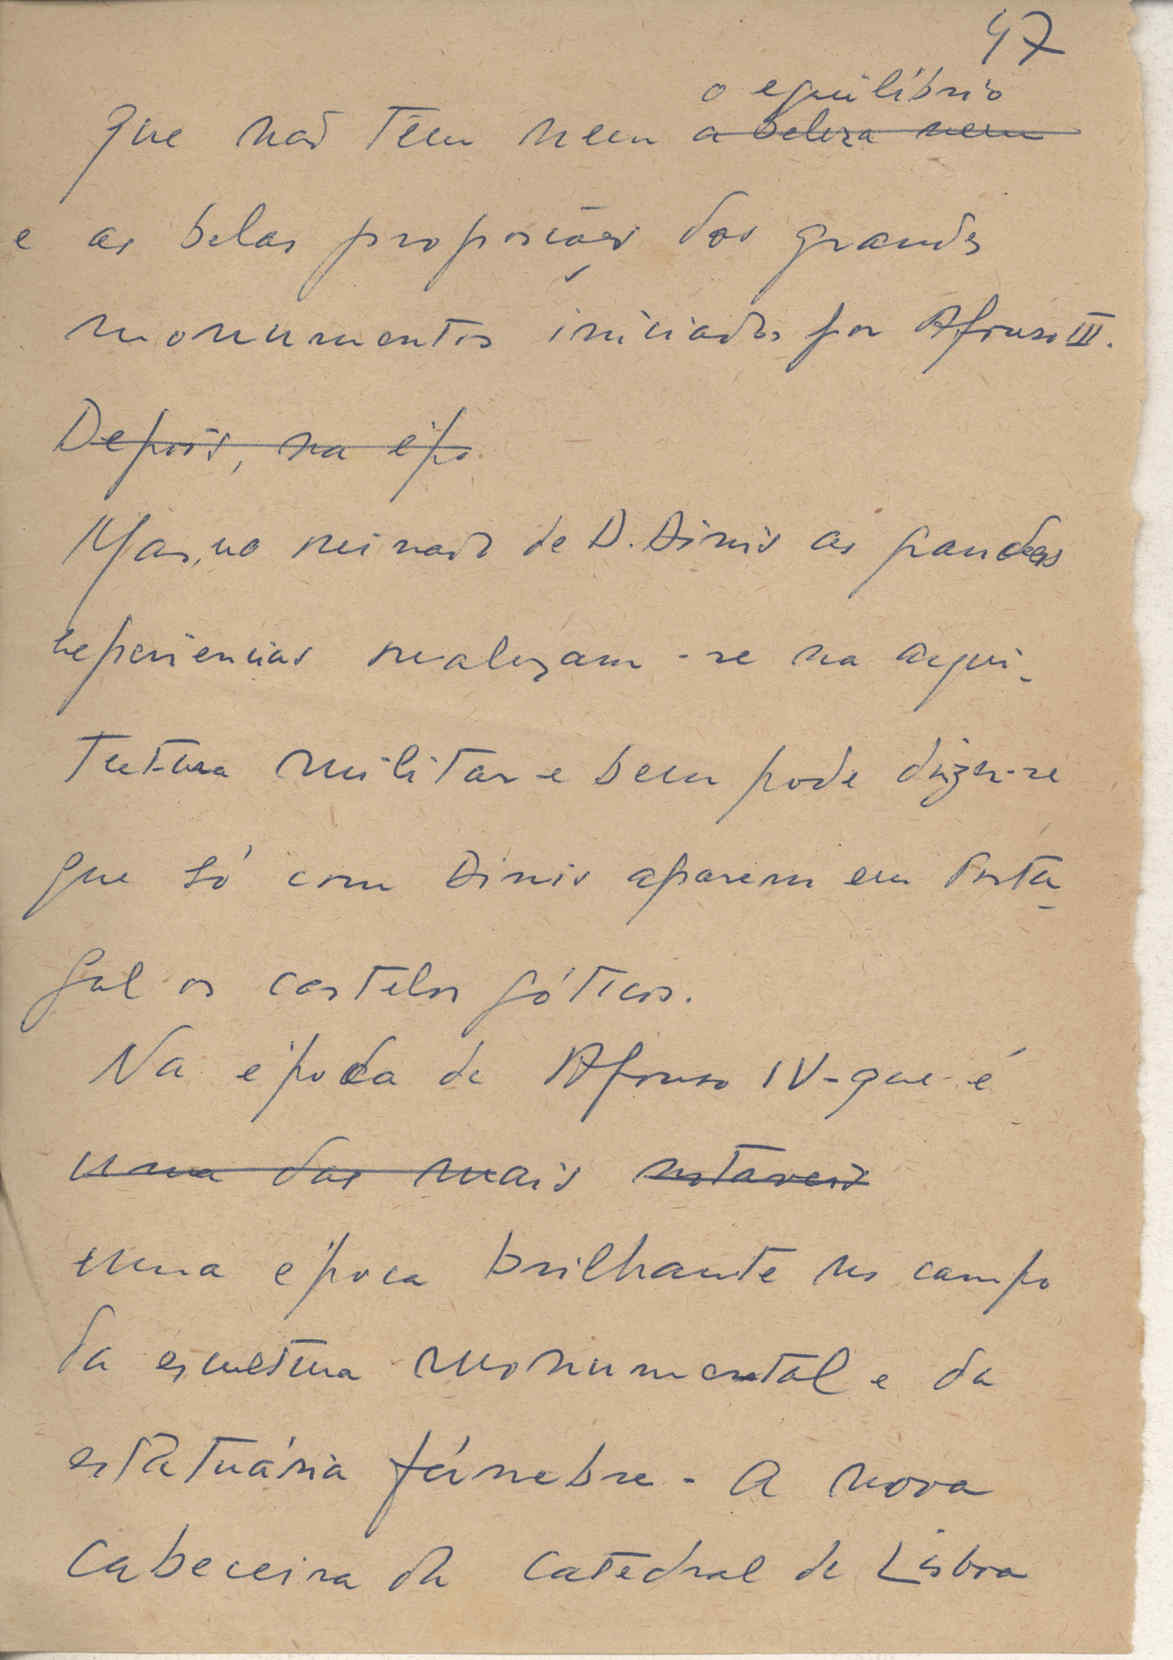 47
o equilíbrio
que não têm nem a beleza nem
e as belas proporções dos grandes
monumentos iniciados por Afonso III.
Depois, na épo
Mas, no reinado de D. Dinis as grandes
experiencias realizam-se na arqui-
tectura militar e bem pode dizer-se
que só com Dinis aparecem em Portu-
gal os castelos góticos.
Na época de Afonso IV - que é
uma das mais notaveis
uma época brilhante no campo
da escultura monumental e da
estatuária fúnebre - a nova
cabeceira da catedral de Lisboa